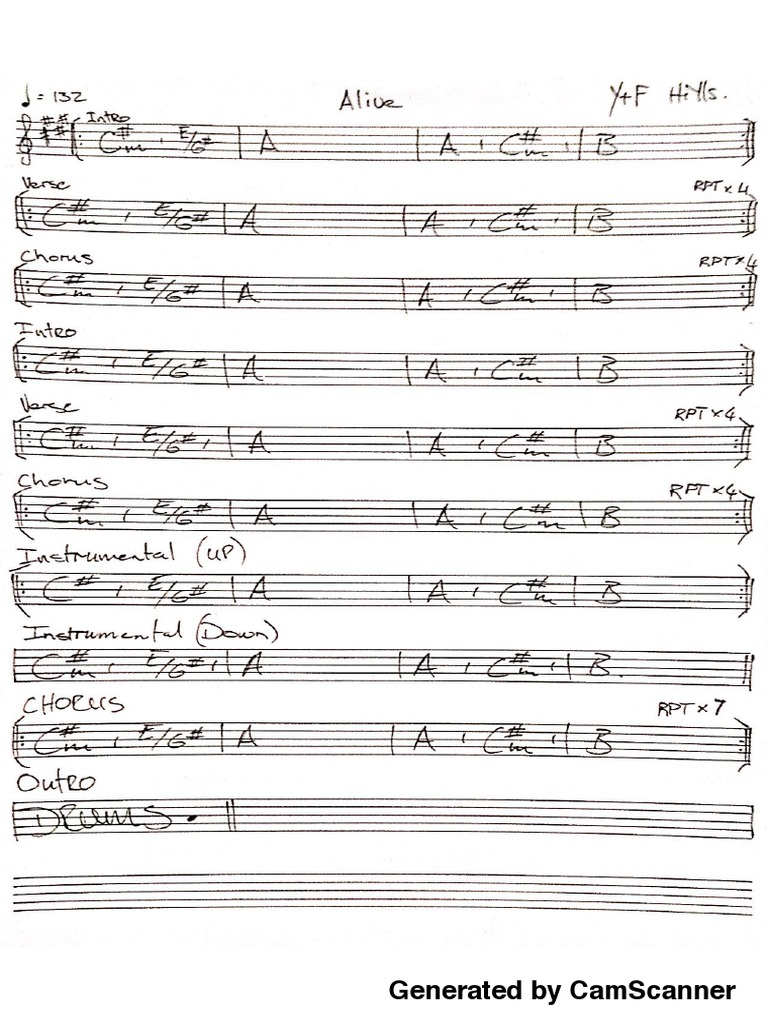 ♩= 132 Alive Y+F Hills.
Intro
C#m , E/G# | A | A , C#m | B
Verse RPT x 4
C#m , E/G# | A | A , C#m | B
Chorus RPT x 4
C#m , E/G# | A | A , C#m | B
Intro
C#m , E/G# | A | A , C#m | B
Verse RPT x 4
C#m , E/G# , | A | A , C#m | B
Chorus RPT x 4
C#m , E/G# | A | A , C#m | B
Instrumental (UP)
C# , E/G# | A | A , C#m | B
Instrumental (Down)
C#m , E/G# , | A | A , C#m | B.
CHORUS RPT x 7
C#m , E/G# | A | A , C#m | B
Outro
DRUMS.
Generated by CamScanner